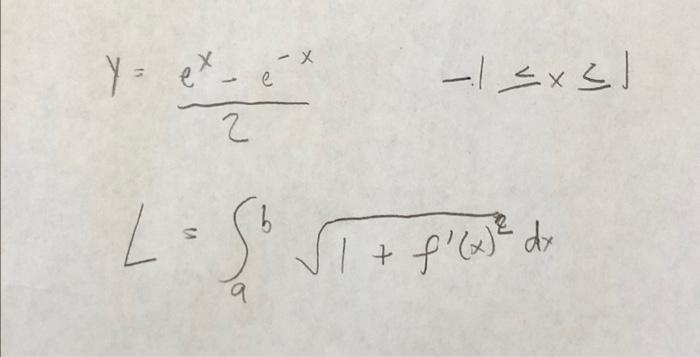 y = (e^x - e^-x)/2    -1 ≤ x ≤ 1
L = ∫_a^b √(1 + f'(x)^2) dx